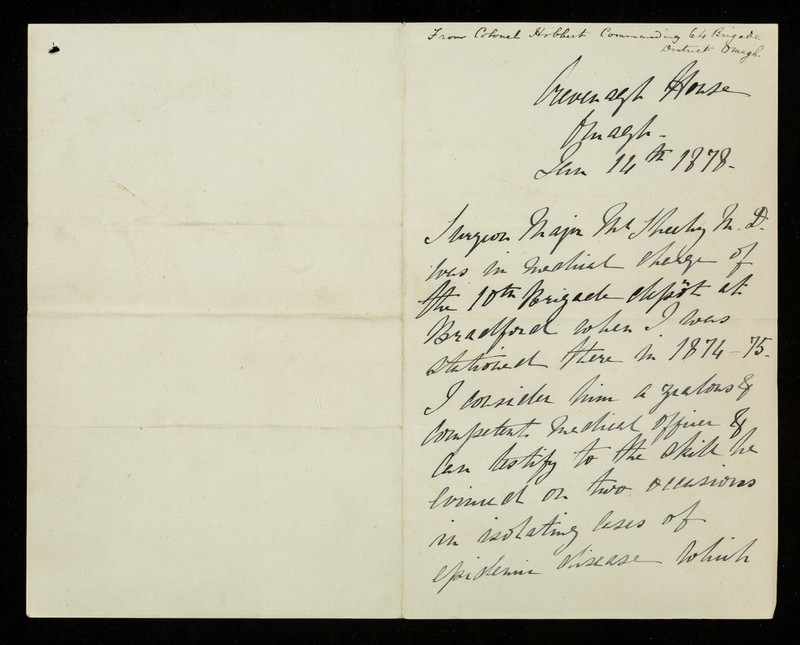 From Colonel Hobbart Commanding 64 Brigade
District Omagh.
Crevenagh House
Omagh -
Jan 14th 1878 -
Surgeon Major McSheehy M.D.
was in medical charge of
the 10th Brigade depôt at
Bradford when I was
stationed there in 1874-75.
I consider him a zealous &
competent medical officer &
can testify to the skill he
evinced on two occasions
in isolating cases of
epidemic disease which